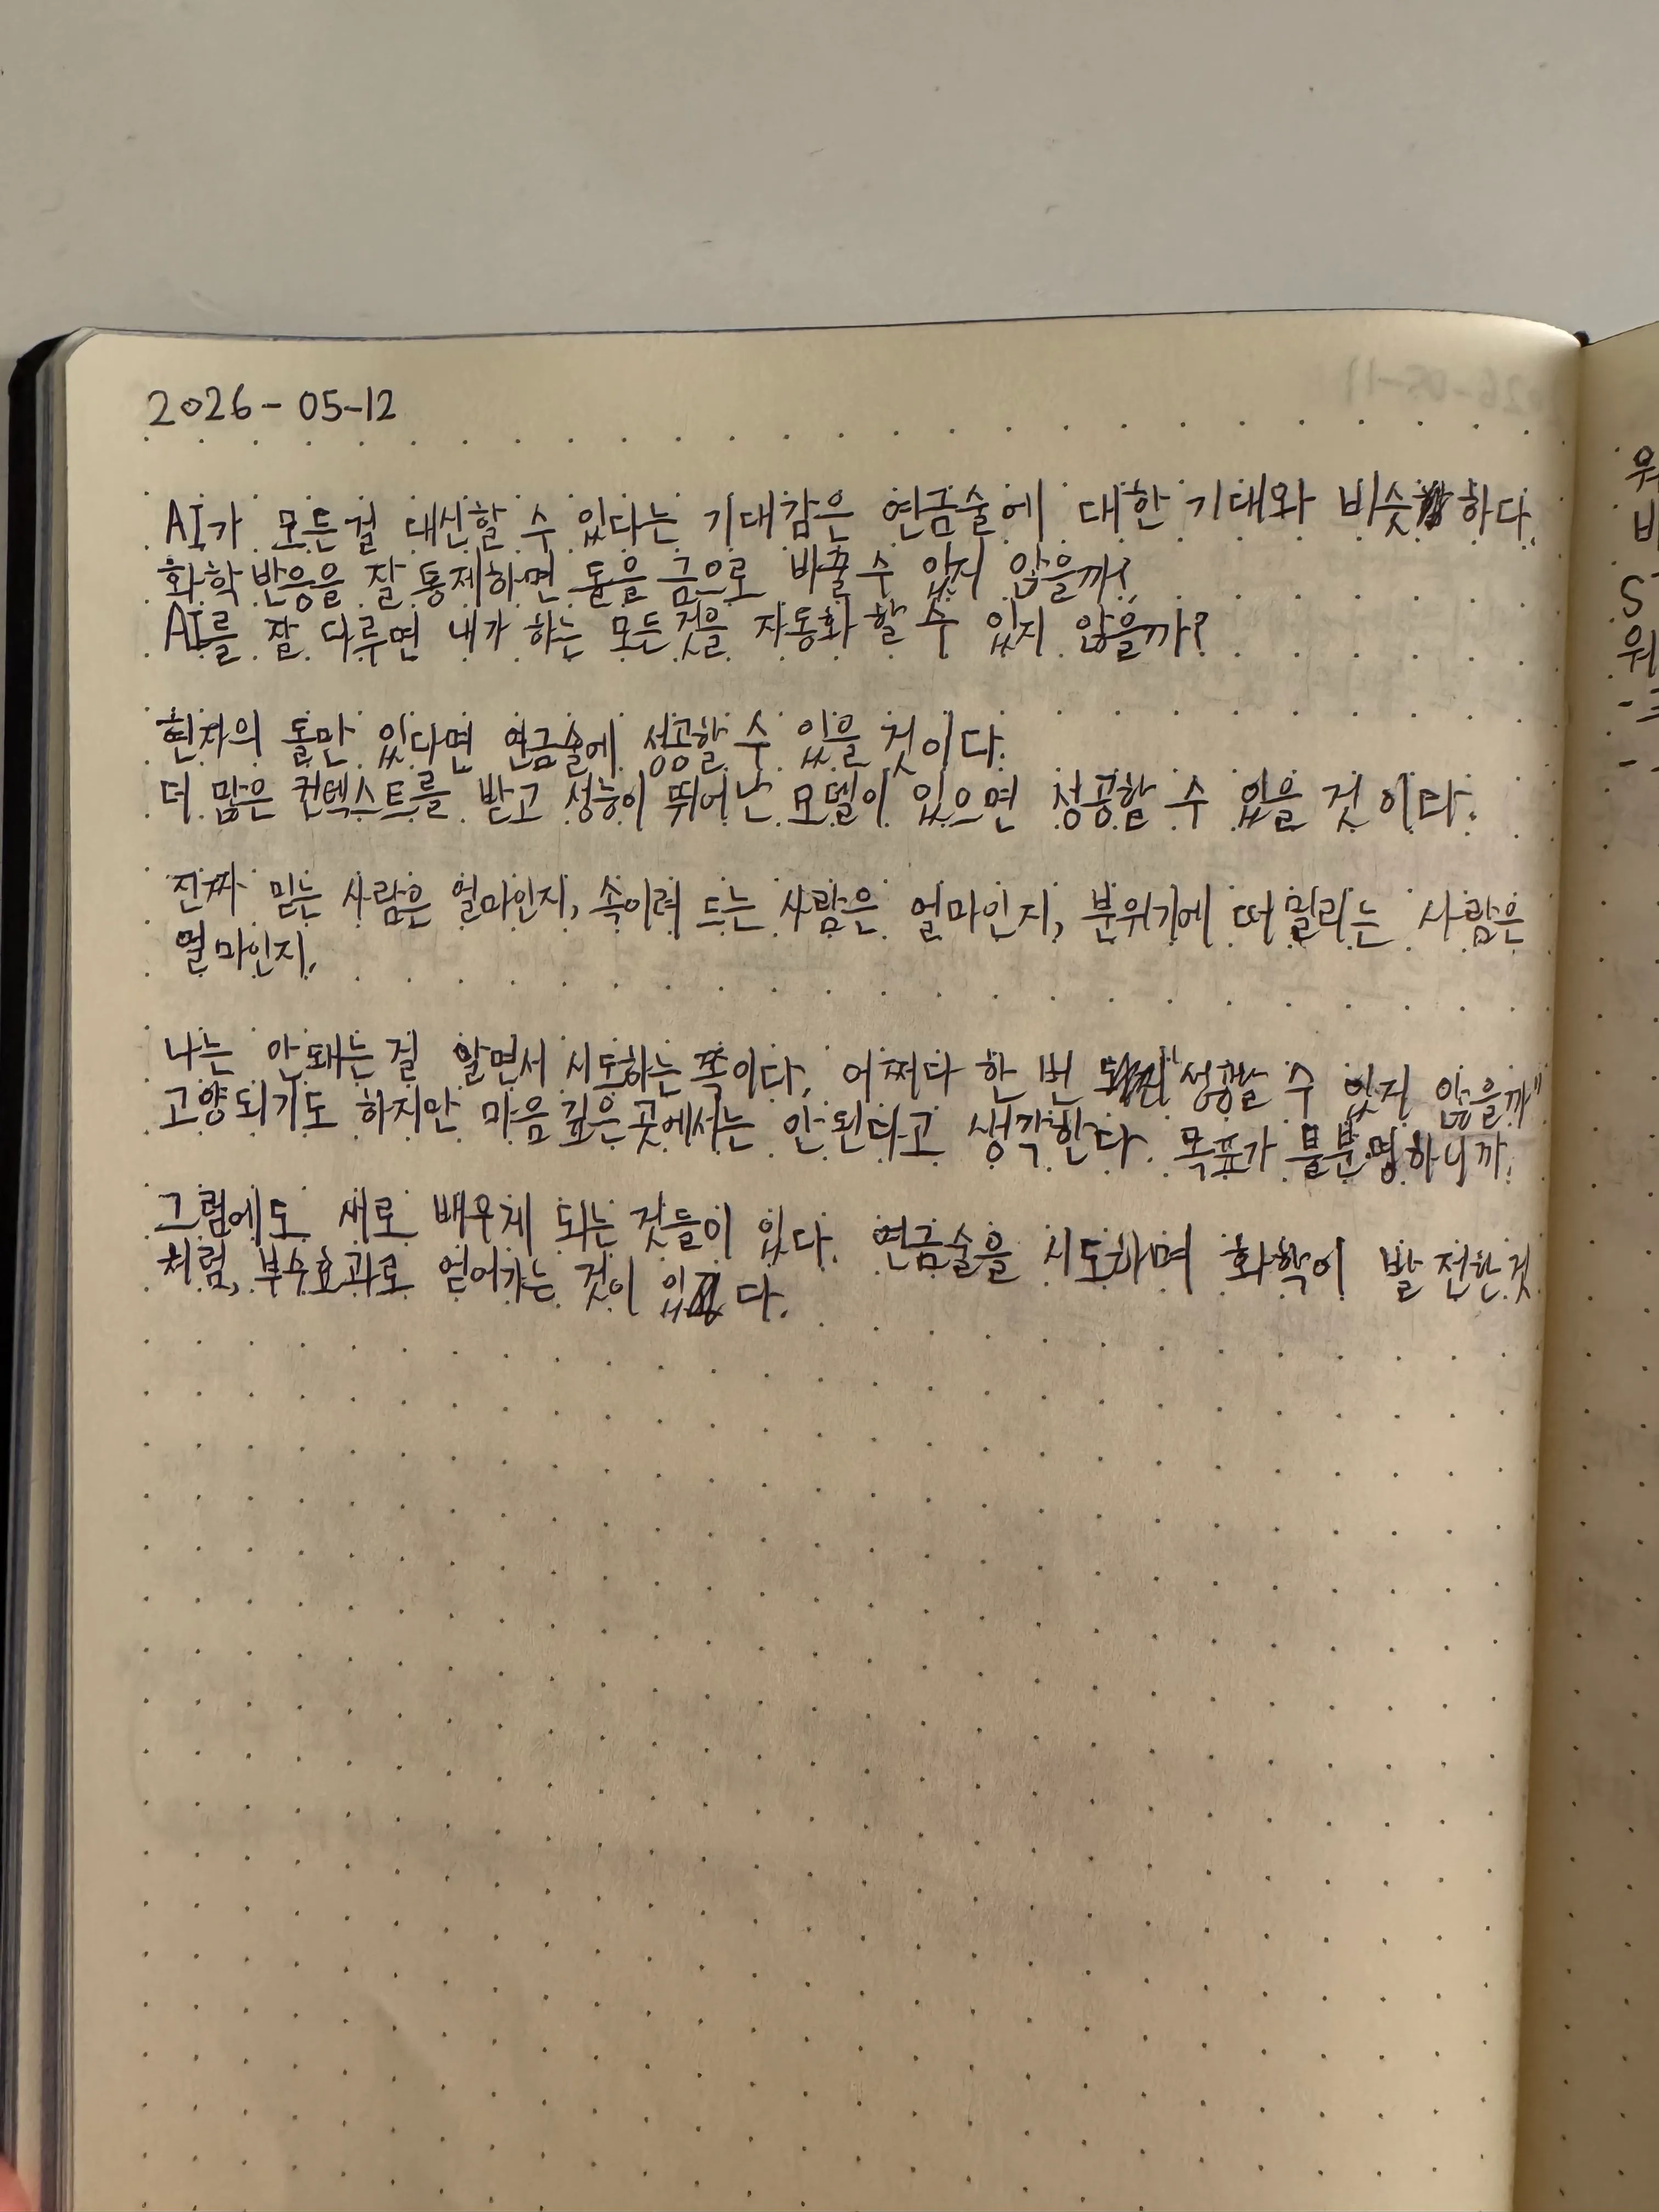 2026-05-12
AI가 모든걸 대신할 수 있다는 기대감은 연금술에 대한 기대와 비슷하다.
화학반응을 잘 통제하면 돌을 금으로 바꿀수 있지 않을까?
AI를 잘 다루면 내가 하는 모든것을 자동화 할 수 있지 않을까?
현자의 돌만 있다면 연금술에 성공할 수 있을 것이다.
더 많은 컨텍스트를 받고 성능이 뛰어난 모델이 있으면 성공할 수 있을 것이다.
진짜 믿는 사람은 얼마인지, 속이려 드는 사람은 얼마인지, 분위기에 떠밀리는 사람은
얼마인지.
나는 안돼는걸 알면서 시도하는 쪽이다. 어쩌다 한 번 "성공할 수 있지 않을까"
고양되기도 하지만 마음 깊은 곳에서는 안된다고 생각한다. 목표가 불분명하니까.
그럼에도 새로 배우게 되는 것들이 있다. 연금술을 시도하며 화학이 발전한것
처럼, 부수효과로 얻어가는 것이 있다.